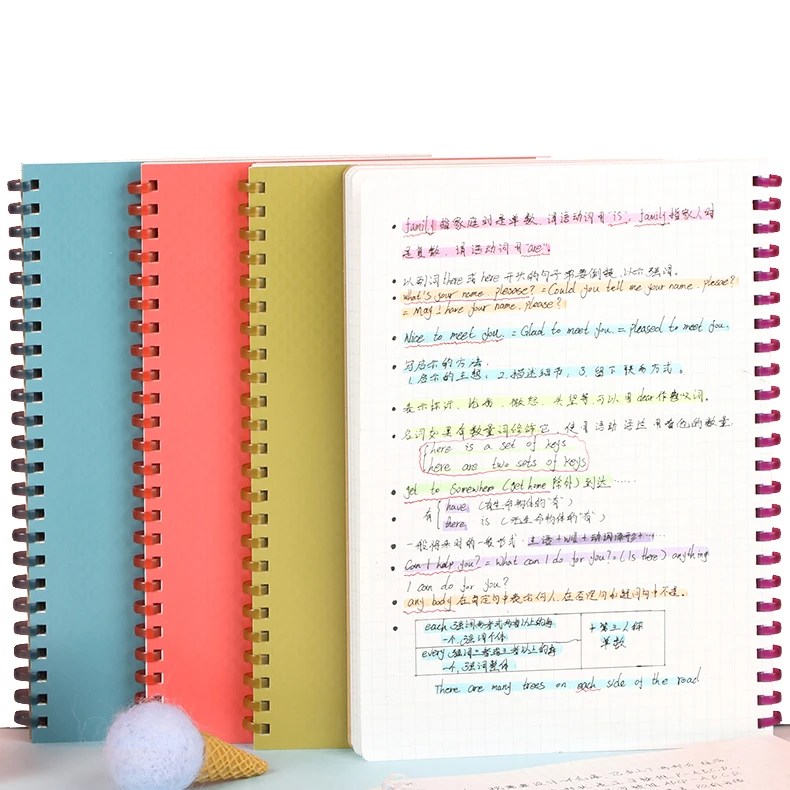 family 指家庭时是单数,谓语动词用"is", family 指家人时
是复数,谓语动词用"are"。
以副词 there 或 here 开头的句子需要倒装,以示强调。
what's your name, plesase? = Could you tell me your name, please?
= May I have your name, please?
Nice to meet you. = Glad to meet you. = pleased to meet you.
写启示的方法:
1.启示的主题; 2.描述细节; 3.留下联系方式。
表示惊讶、
名词如果有数量词修饰它,使用
there is a set of keys
there are two sets of keys
get to Somewhere (get home 除外) 到达 ……
有 have (有生命物体的"有")
there is (无生命物体的"有")
一般将来时的一般形式: 主语 + will + 动词原形 + …
Can I help you? = What can I do for you? = (Is there) anything
I can do for you?
any body 在肯定句中表示任何人,在否定句和疑问句中不选。
each 强调两者或两者以上的每
一个,强调个体
every 强调三者或三者以上的每
一个,强调整体
+ 第三人称
单数
There are many trees on each side of the road